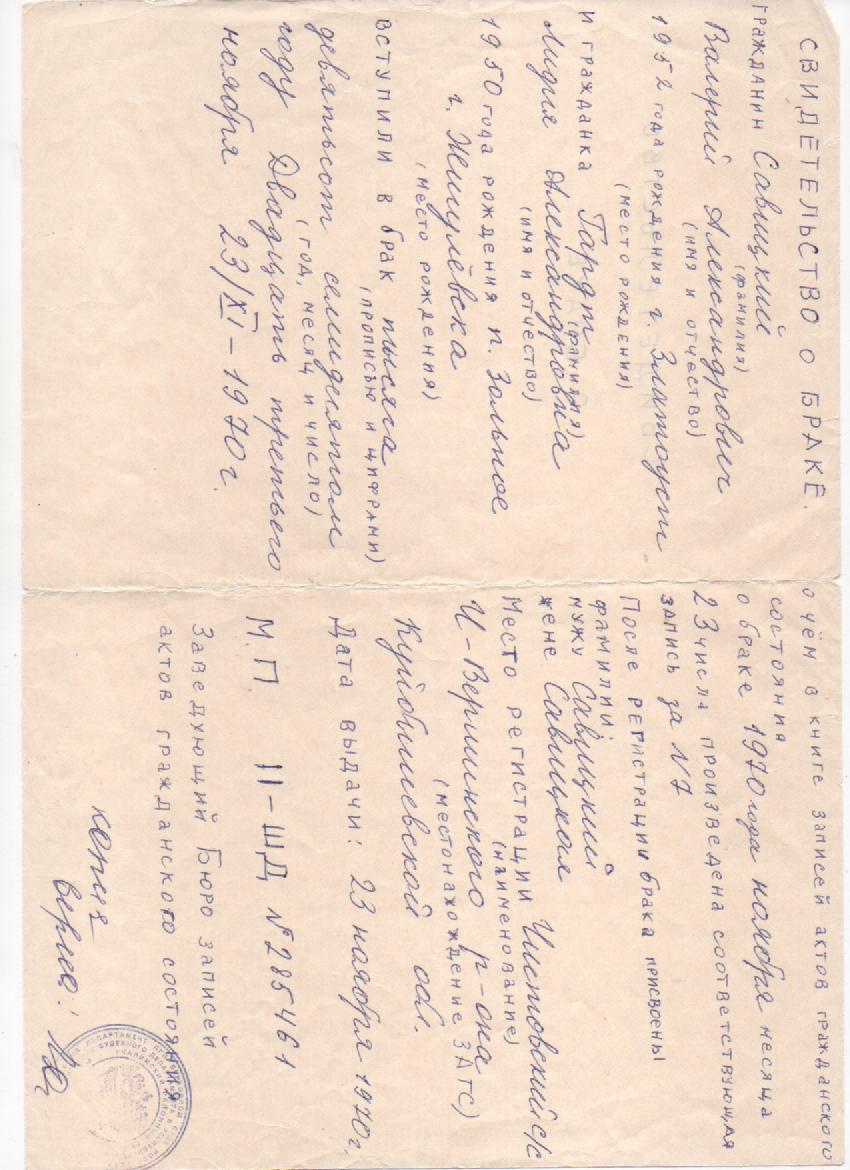 СВИДЕТЕЛЬСТВО О БРАКЕ.
ГРАЖДАНИН Савицкий
(фамилия)
Валерий Александрович
(имя и отчество)
1952 года рождения г. Златоуст
(место рождения)
И гражданка Гардт
(фамилия)
Лидия Александровна
(имя и отчество)
1950 года рождения п. Зольное
г. Жигулёвска
(место рождения)
ВСТУПИЛИ В брак тысяча
(прописью и цифрами)
девятьсот семидесятом
(год, месяц и число)
году Двадцать третьего
ноября 23/XI - 1970 г.
о чём в книге записей актов гражданского
состояния
о браке 1970 года ноября месяца
23 числа произведена соответствующая
запись за N7
После регистрации брака присвоены
фамилии:
мужу Савицкий
жене Савицкая
Место регистрации Чистовский с/с
(наименование)
И-Вершинского р-она
(местонахождение ЗАГС)
Куйбышевской обл.
Дата выдачи: 23 ноября 1970 г.
М.П. II-ШД N285461
Заведующий Бюро записей
актов гражданского состояния
копия
верна: